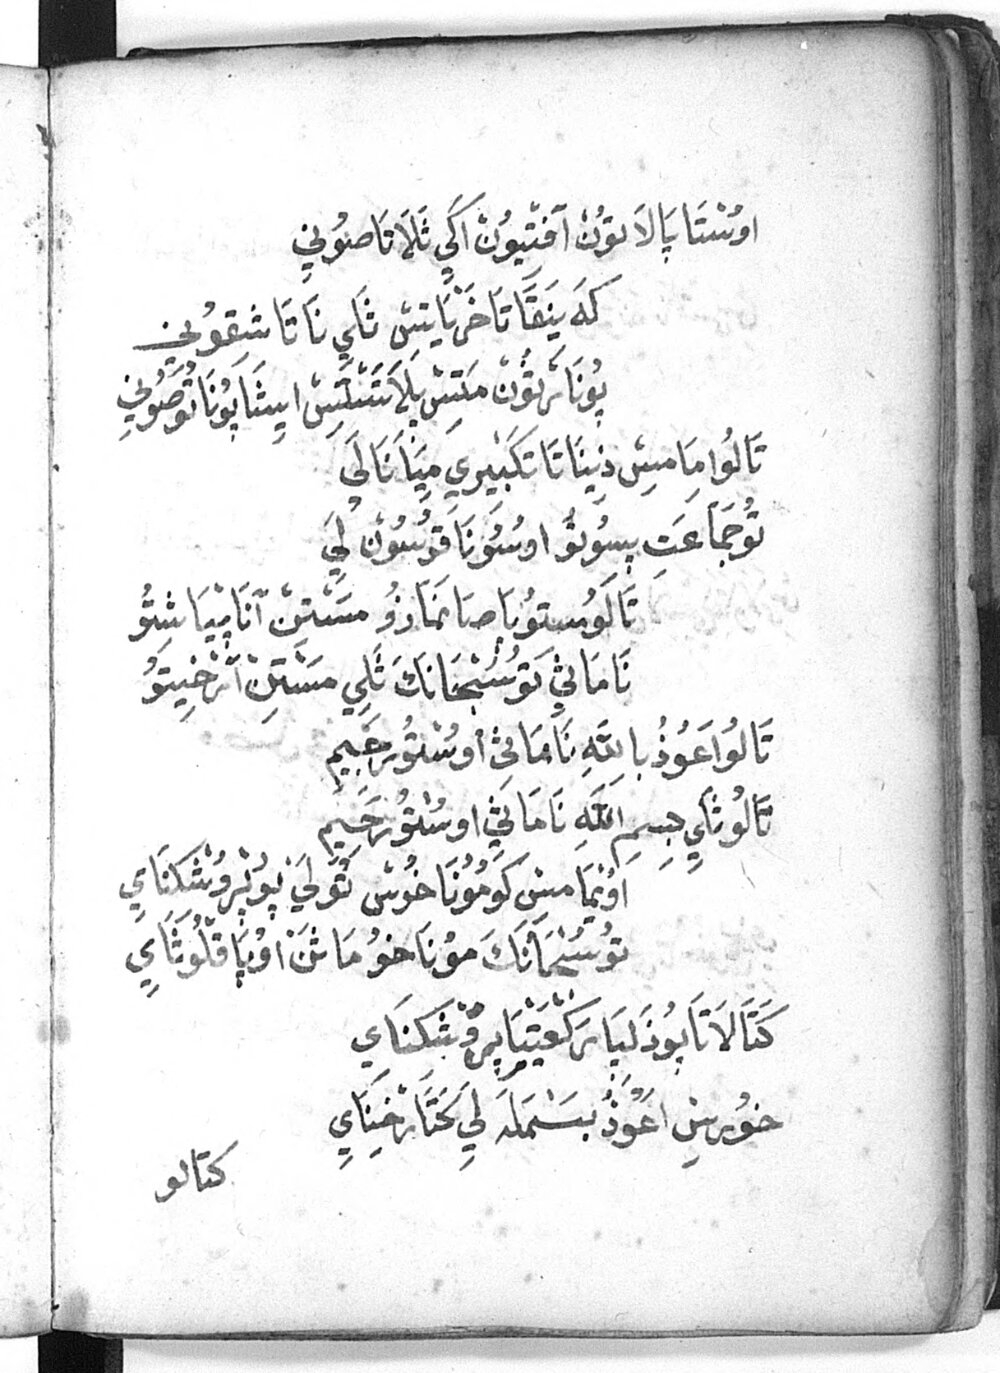 اوُسْتَا پَالَا توُنْ آفْتِيوُنْ اَكِي ثَلَا تَا صوُنِي
كَه يَنَقَا تَا خَرْيَايتِسْ ثَايِ نَا تَا شِقوُنِي
پوُنَا رْتوُنْ مَتِسْ اِيثَا پوُنَا توُ صَوُنِي
تَالوُا مِامِسْ ذِينَا تَا تَكْبِيرِي مِيَا نَا لَي
توُ جَمَاعَتِ پِسوُتوُ اوُسوُنَا قوُسوُنْ لَي
تَا لَوُ سْتوُ پَاصَا نَمَازوُ مَسْتِنْ آنَاپِيَا شِتوُ
نَا مَاثِي تَوُ سُبْحَانَكَ ثَلِي مَسْتِنْ آرْخِيتوُ
تَا لوُ اَعوُذُ بِاللَّهِ نَا مَاثِي اوُسْتوُ رَجِيمِ
تَا لوُ ثَايِ بِسِمِ اللَّهِ نَا مَاثِي اوُسْتوُ رَحِيمِ
اوُيْمَامِسْ كَوُموُنَا خوُسْ توُ لَيْ پوُ پْروُشْكِنَايِ
توُ سُبْحَانَكَ موُنَا خوُ مَاثَنْ اوُپَاقْلوُثَايِ
كَتَّالَا تَا پوُذَلِيَا رَكْعَتِيَا پْروُشْكِنَايِ
خوُرِسْ اَعوُذُ بَسْمَلَه لِي كَتَّارْخِنَايِ
كتالو